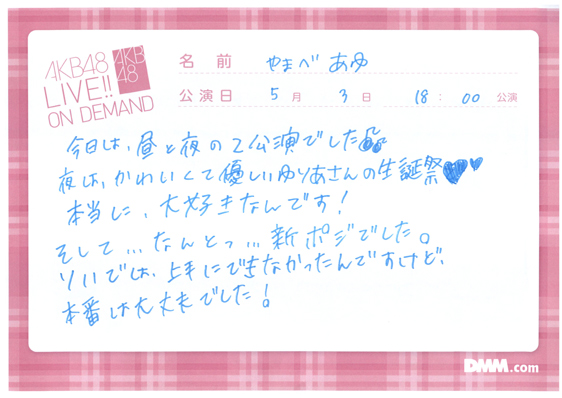 AKB48
LIVE!!
ON DEMAND
AKB
48
名前 やまべ あゆ
公演日 5月 3日 18:00 公演
今日は、昼と夜の2公演でした
夜は、かわいくて優しいゆりあさんの生誕祭
本当に、大好きなんです!
そして...なんとっ...新ポジでした。
リハでは、上手にできなかったんですけど、
本番は大丈夫でした!
DMM.com